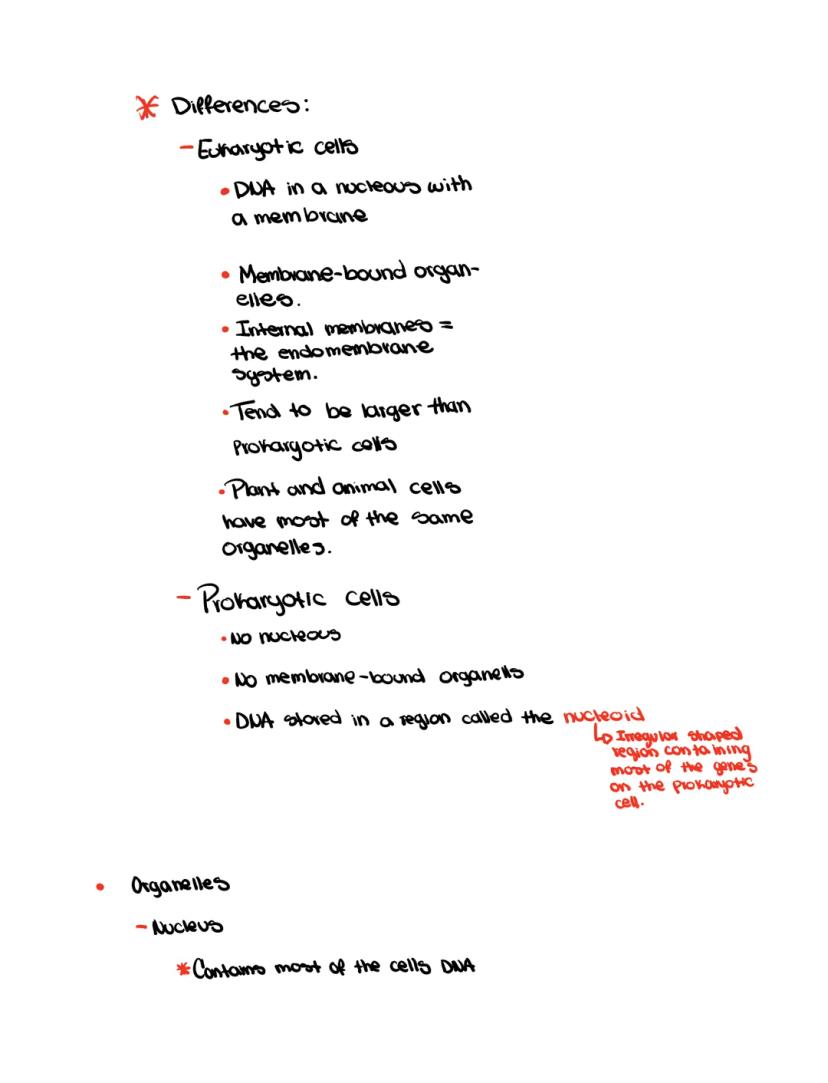 * Differences:
- Eukaryotic cells
• DNA in a nucleous with
a membrane
• Membrane-bound organ-
elles.
• Internal membranes =
the endomembrane
system.
• Tend to be larger than
Prokaryotic cells
• Plant and animal cells
have most of the same
organelles.
- Prokaryotic cells
• No nucleous
• No membrane-bound organells
• DNA stored in a region called the nucleoid
↳ Irregular shaped
region containing
most of the genes
on the prokaryotic
cell.
• Organelles
- Nucleus
* Contains most of the cells DNA